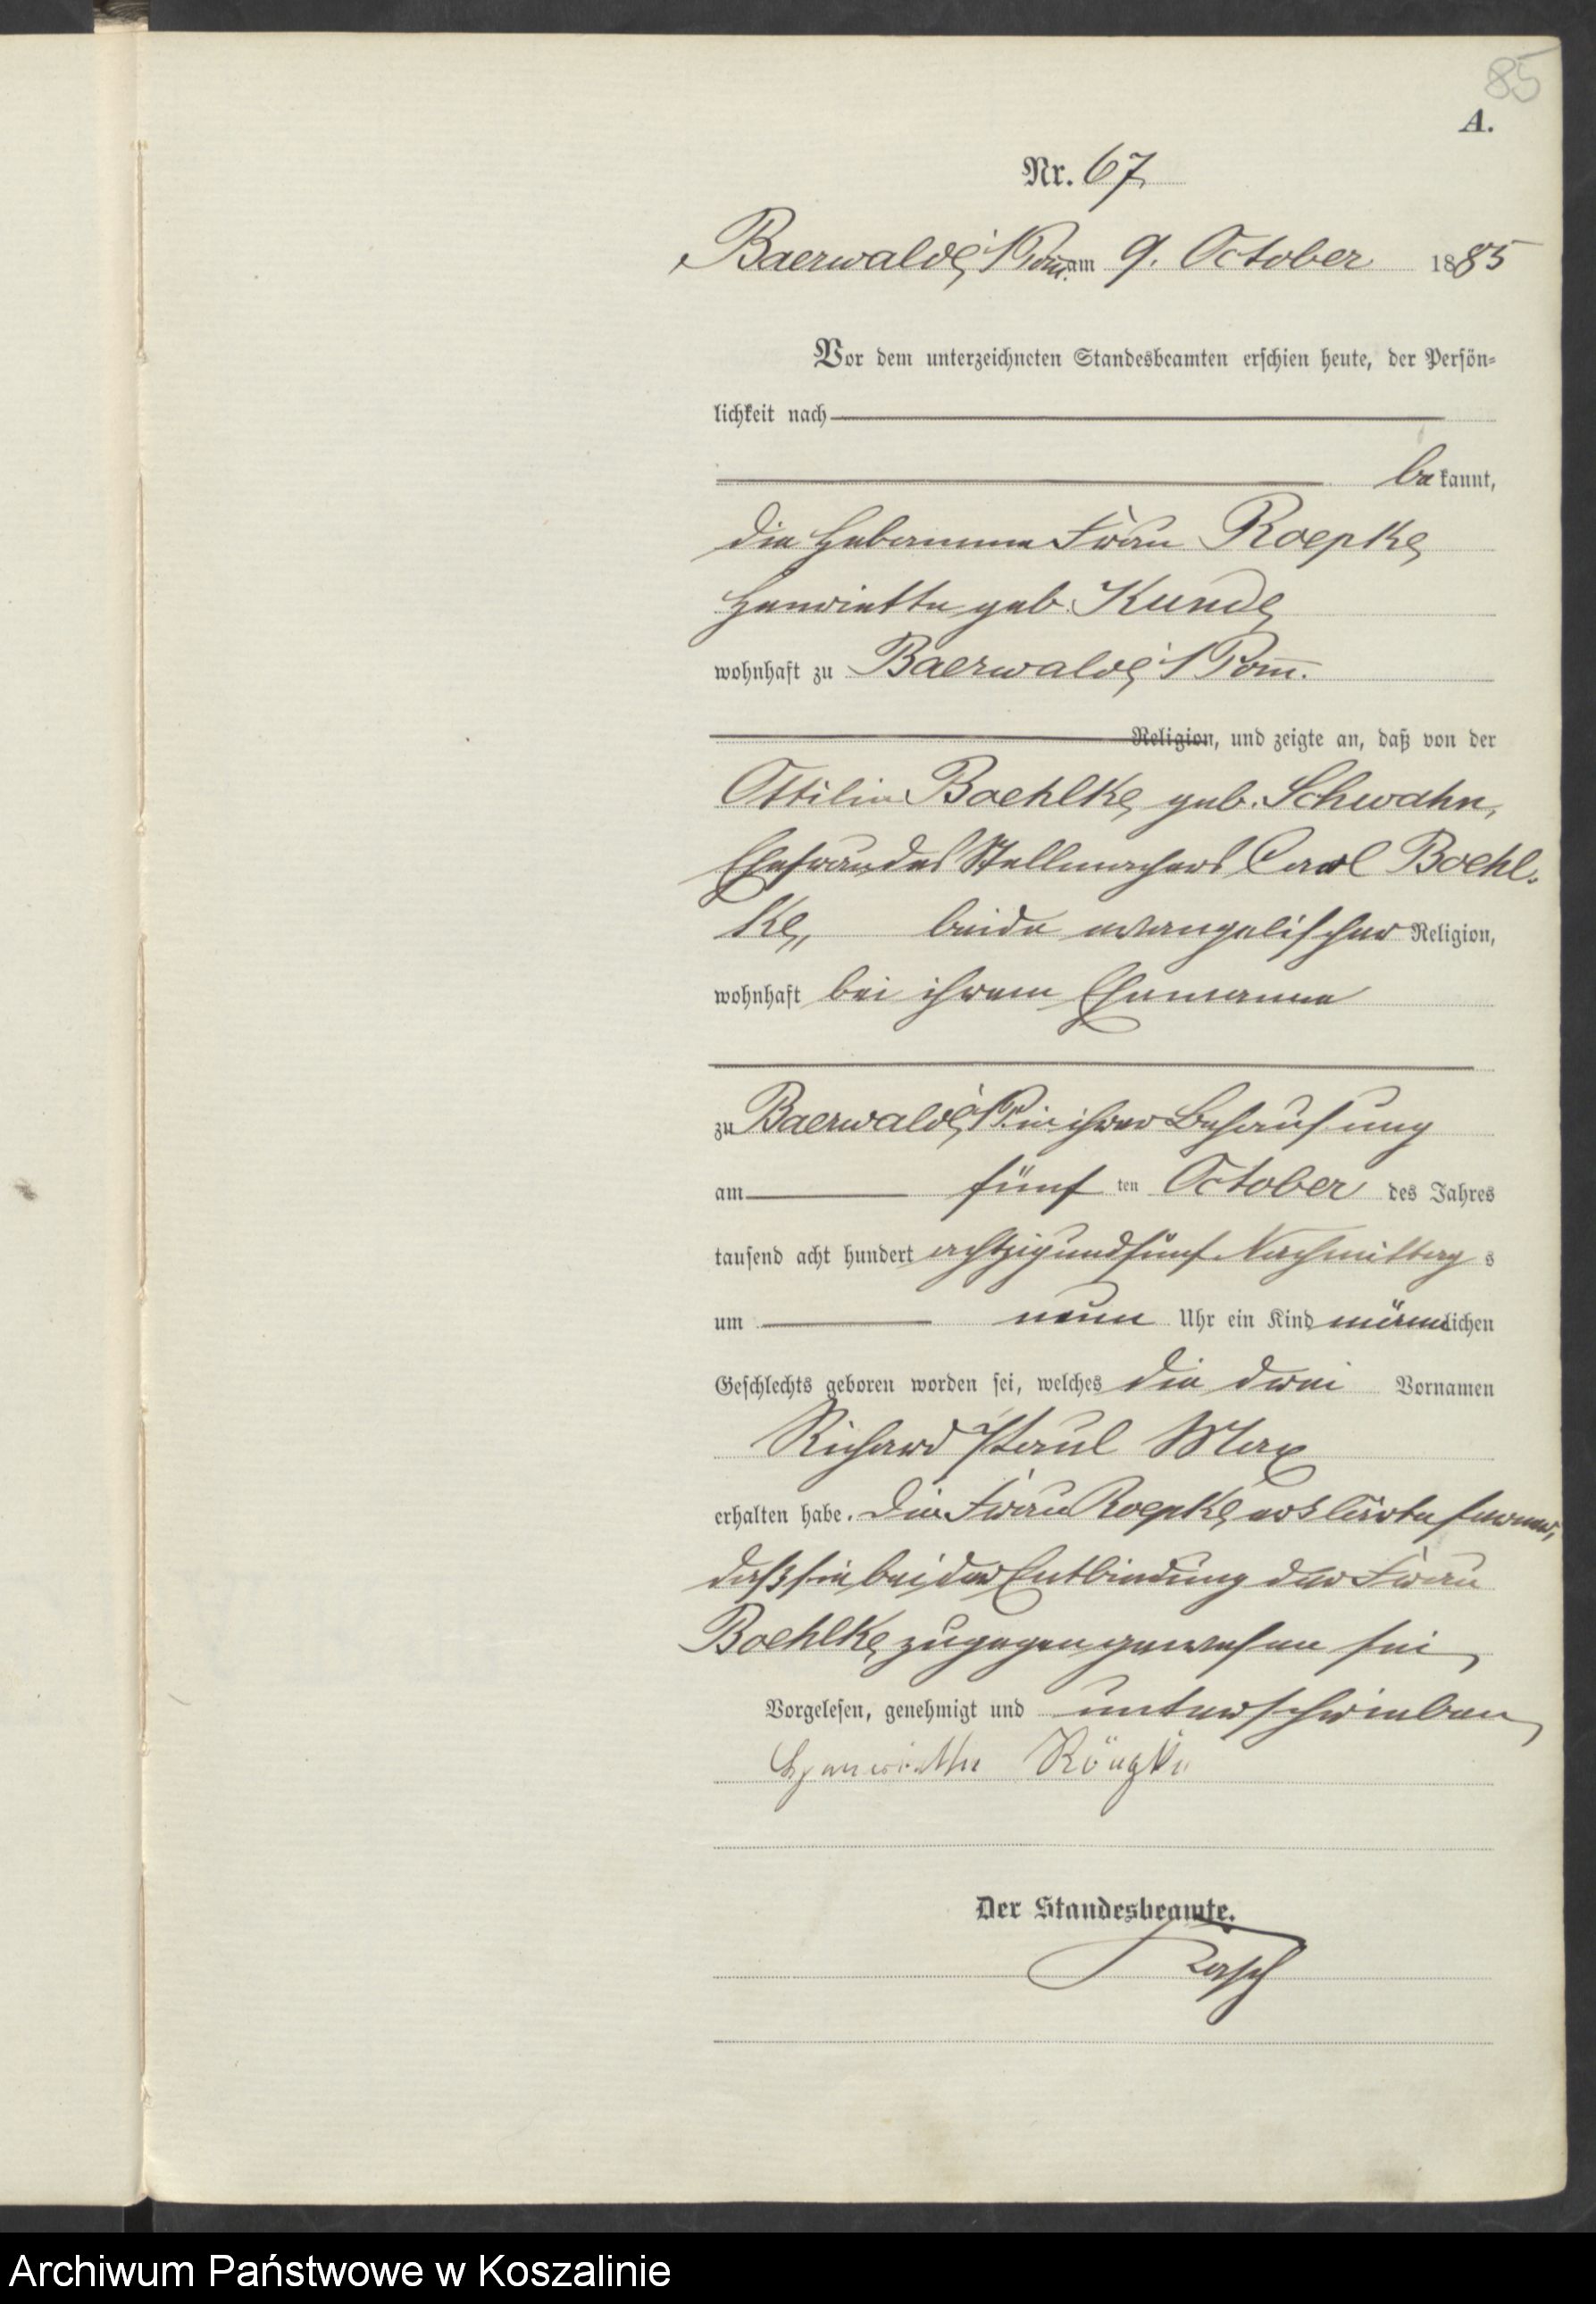 85
A.
Nr. 67
Baerwalde i/Pom. am 9. October 1885
Vor dem unterzeichneten Standesbeamten erschien heute, der Persön-
lichkeit nach
bekannt,
die Hebamme Frau Roepke
Henriette geb. Kunde
wohnhaft zu Baerwalde i/Pom.
Religion, und zeigte an, daß von der
Ottilie Boehlke geb. Schwahn,
Ehefrau des Stellmachers Carl Boehl-
ke, beide evangelischer Religion,
wohnhaft bei ihrem Ehemanne
zu Baerwalde i/P. in ihrer Behausung
am fünften October des Jahres
tausend acht hundert achtzig und fünf Nachmittags
um neun Uhr ein Kind männlichen
Geschlechts geboren worden sei, welches die drei Vornamen
Richard Paul Max
erhalten habe. Die Frau Roepke erklärte ferner,
daß sie bei der Entbindung der Frau
Boehlke zugegen gewesen sei
Vorgelesen, genehmigt und unterschrieben
Henriette Röepke
Der Standesbeamte.
Archiwum Państwowe w Koszalinie